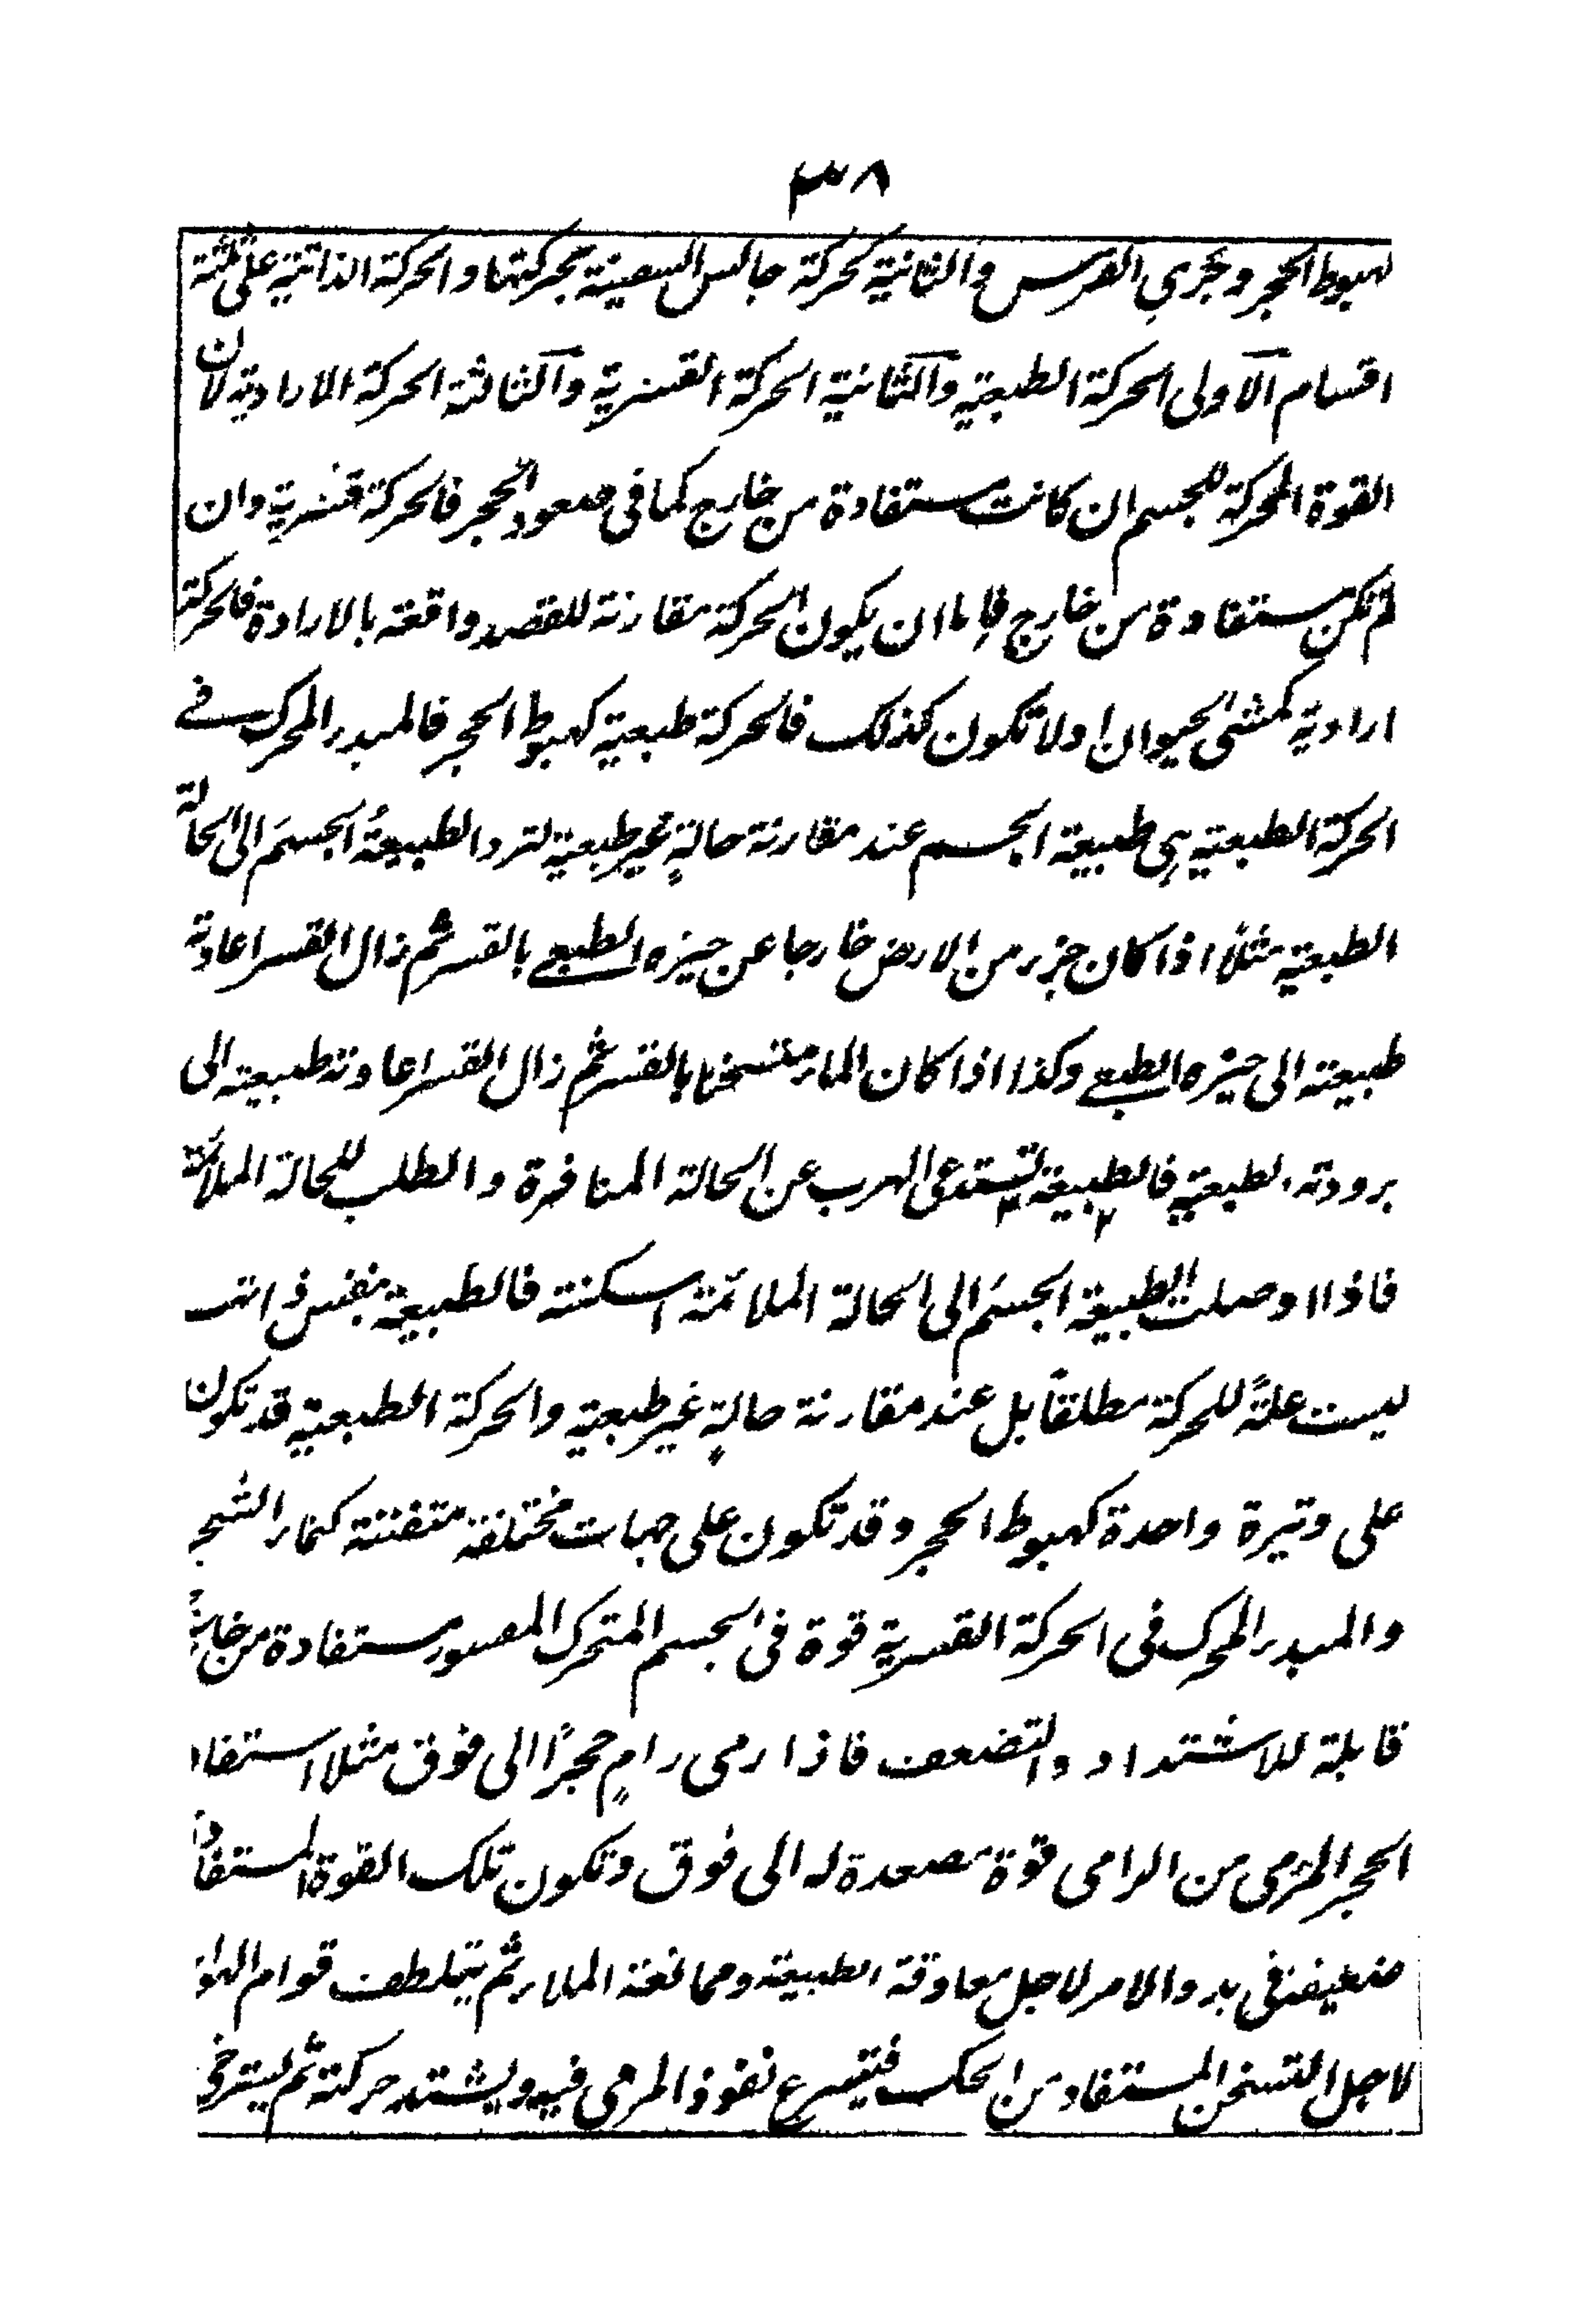 ٣٨
لهبوط الحجر وجري الفرس والثانية كحركة جالس السفينة بحركتها والحركة الذاتية على ثلثة
اقسام الاولى الحركة الطبعية والثانية الحركة القسرية والثالثة الحركة الارادية لان
القوة المحركة للجسم ان كانت مستفادة من خارج كما فى صعود الحجر فالحركة قسرية وان
لم تكن مستفادة من خارج فاما ان يكون الحركة مقارنة للقصد واقعة بالارادة فالحركة
ارادية كمشى الحيوان او لا تكون كذلك فالحركة طبعية كهبوط الحجر فالمبدء المحرك فے
الحركة الطبعية هى طبيعة الجسم عند مقارنة حالةٍ غير طبعية لترد الطبيعةُ الجسمَ الى الحالة
الطبعية مثلاً اذا كان جزء من الارض خارجا عن حيزه الطبعے بالقسر ثم زال القسر اعادته
طبيعته الى حيزه الطبعے وكذا اذا كان الماء متسخنا بالقسر ثم زال القسر اعادته طبيعته الى
برودته الطبعية فالطبيعة تستدعى الهرب عن الحالة المنافرة والطلب للحالة الملائمة
فاذا اوصلت الطبيعة الجسمَ الى الحالة الملائمة اسكنته فالطبيعة بنفس ذاتها
ليست علةً للحركة مطلقاً بل عند مقارنة حالةٍ غير طبعية والحركة الطبعية قد تكون
على وتيرة واحدة كهبوط الحجر وقد تكون على جهات مختلفة متفننة كنماء الشجر
والمبدء المحرك فى الحركة القسرية قوة فى الجسم المتحرك المقسور مستفادة من خارج
قابلة للاشتداد والتضعف فاذا رمى رامٍ حجراً الى فوق مثلا استفاد
الحجر المرمى من الرامى قوة مصعدة له الى فوق وتكون تلك القوة المستفادة
ضعيفة فى بدو الامر لاجل معاوقة الطبيعة وممانعة الملاء ثم يتلطف قوام الهواء
لاجل التسخن المستفاد من الحك فيسرع نفوذ المرمى فيه ويشتد حركته ثم يسترخى